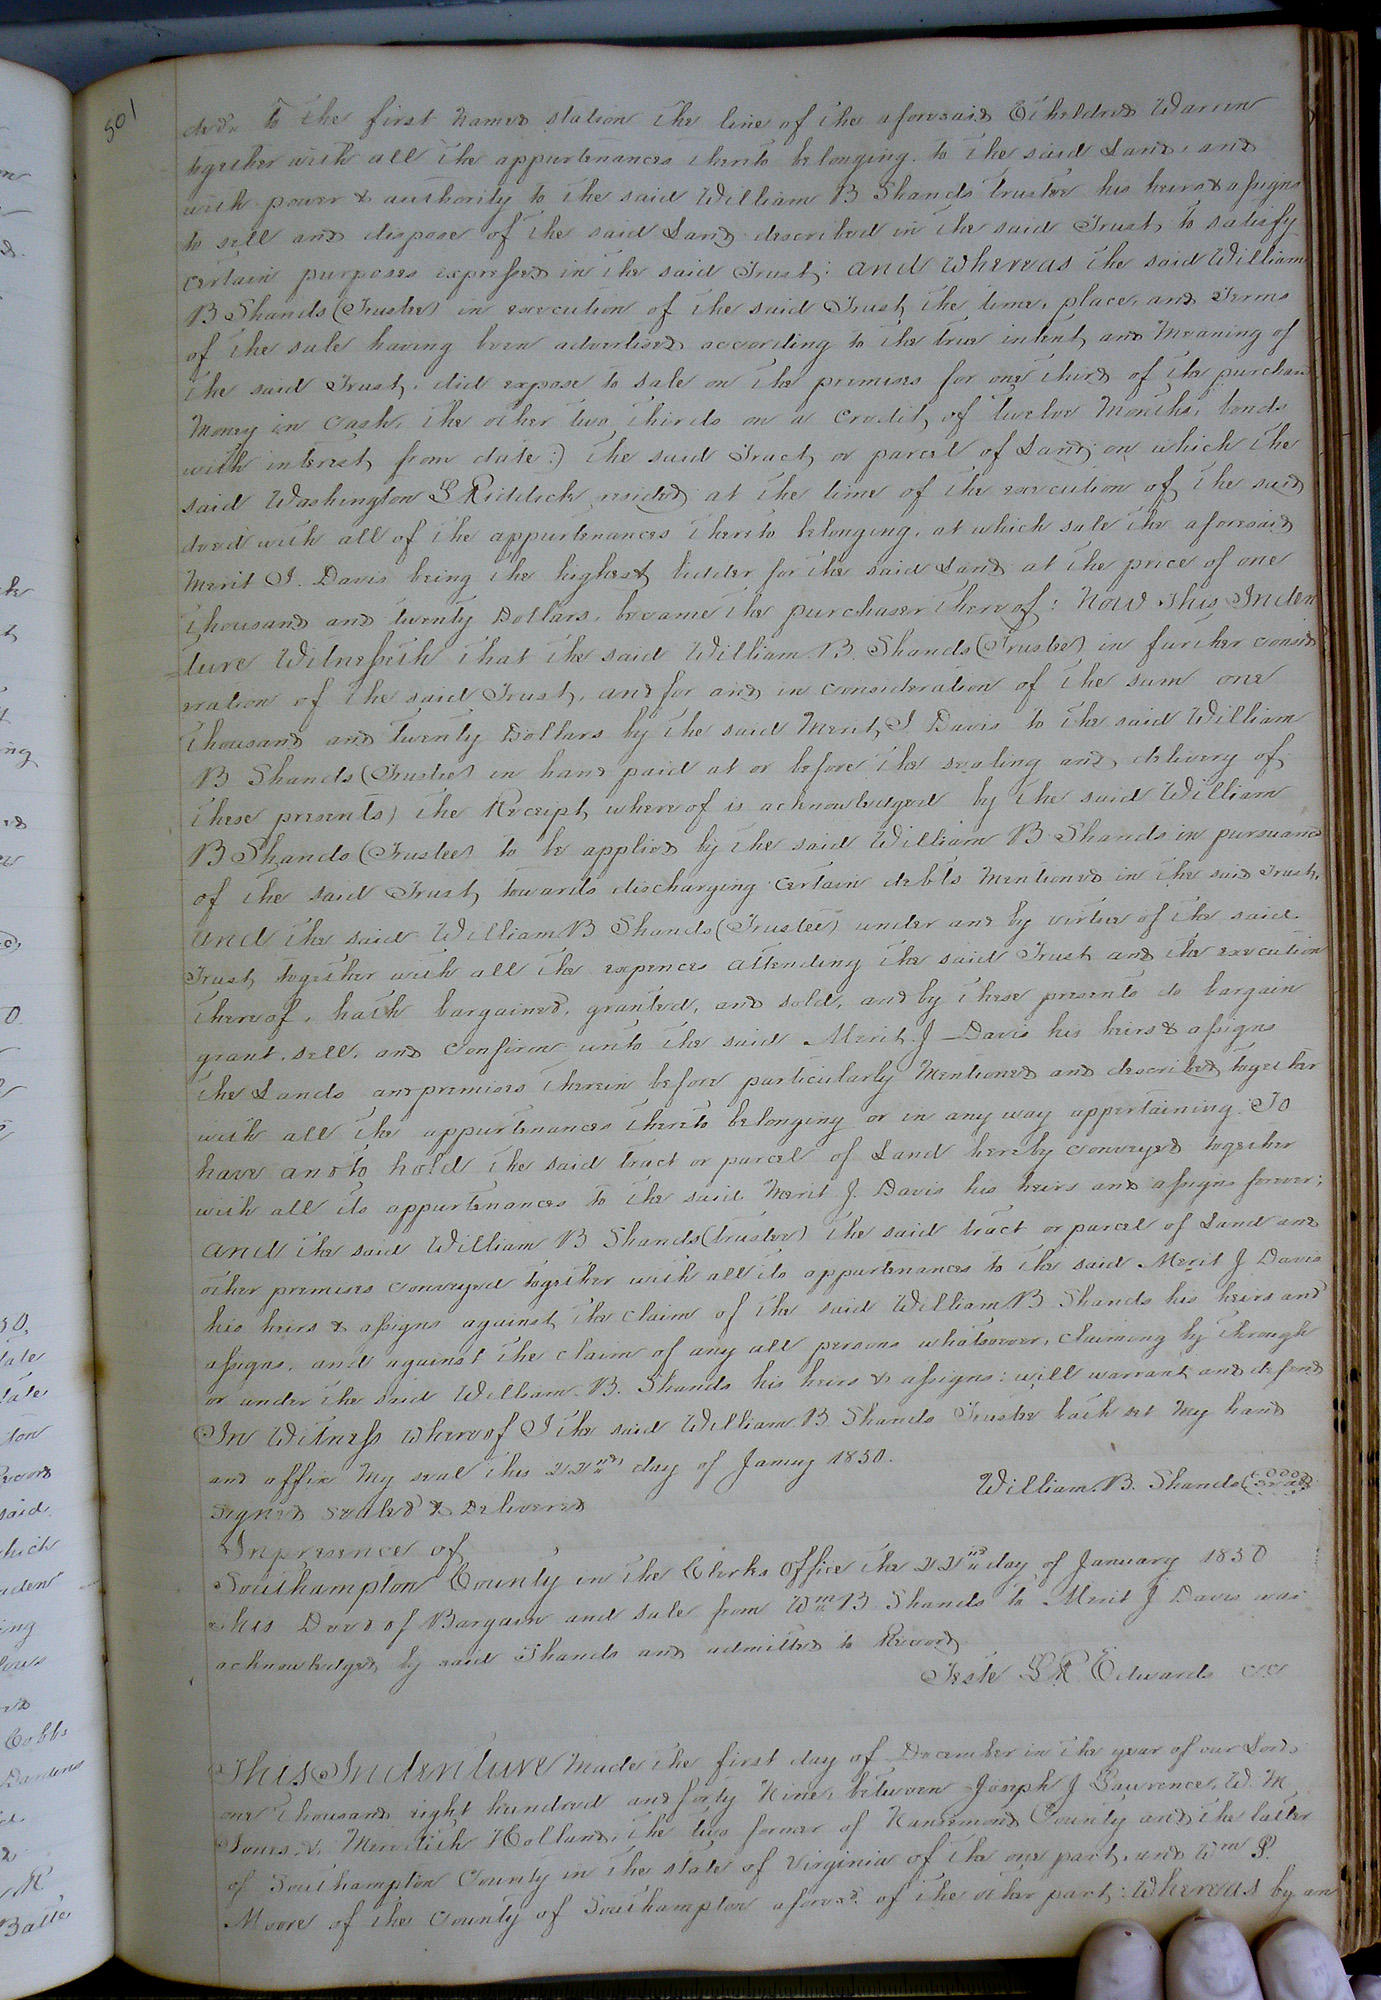 501
to the first named station the line of the aforesaid Etheldred Warren
together with all the appurtenances thereto belonging. to the said Land, and
with power & authority to the said William B Shands trustee his heirs & assigns
to sell and dispose of the said Land described in the said Trust, to satisfy
certain purposes expressed in the said Trust; and whereas the said William
B Shands (Trustee) in execution of the said Trust, the time, place, and Terms
of the sale having been advertised according to the true intent and Meaning of
the said Trust, did expose to sale on the premises for one third of the purchase
Money in Cash, the other two thirds on a Credit, of twelve Months, bonds
with interest, from date:) the said Tract, or parcel of Land, on which the
said Washington L Riddick resided at the time of the execution of the said
deed with all of the appurtenances thereto belonging, at which sale the aforesaid
Merit J. Davis being the highest bidder for the said Land at the price of one
thousand and twenty Dollars, became the purchaser thereof: Now This Inden
=ture Witnesseth that the said William B. Shands (Trustee) in further consid
eration of the said Trust, and for and in consideration of the sum one
thousand and twenty Dollars by the said Merit, J Davis to the said William
B Shands (Trustee) in hand paid at or before the sealing and delivery of
these presents) the Receipt, whereof is acknowledged by the said William
B Shands (Trustee) to be applied by the said William B Shands in pursuance
of the said Trust, towards discharging certain debts Mentioned in the said Trust,
and the said William B Shands (Trustee) under and by virtue of the said
Trust, together with all the expences attending the said Trust and the execution
thereof, hath bargained, granted, and sold, and by these presents do bargain
grant, sell, and Confirm unto the said Merit. J Davis his heirs & assigns
the Lands and premises therein before particularly Mentioned and described, together
with all the appurtenances thereto belonging or in any way appertaining: To
have and to hold the said tract or parcel of Land hereby conveyed together
with all its appurtenances to the said Merit J. Davis his heirs and assigns forever;
and the said William B Shands (trustee) the said tract or parcel of Land and
other premises conveyed together with all its appurtenances to the said Merit J Davis
his heirs & assigns against, the claim of the said William B Shands his heirs and
assigns, and against the claim of any all persons whatsoever, claiming by through
or under the said William. B. Shands his heirs & assigns: will warrant and defend
In Witness whereof I the said William B Shands Trustee hath set My hand
and affix My seal this 22nd day of January 1850.
William. B. Shands (Seal)
Signed Sealed & Delivered
In presence of
Southampton County in the Clerks Office the 22nd day of January 1850
This Deed of Bargain and sale from Wm B Shands to Merit J Davis was
acknowledged, by said Shands and admitted to Record
Teste L R Edwards CC
This Indenture Made the first day of December in the year of our Lord,
one thousand eight hundred and forty Nine, between Joseph J Lawrence, W. M
Jones, & Meredith Holland, the two former of Nansemond County and the latter
of Southampton County in the State of Virginia of the one part, and Wm P.
Moore of the County of Southampton aforesd. of the other part: Whereas by an